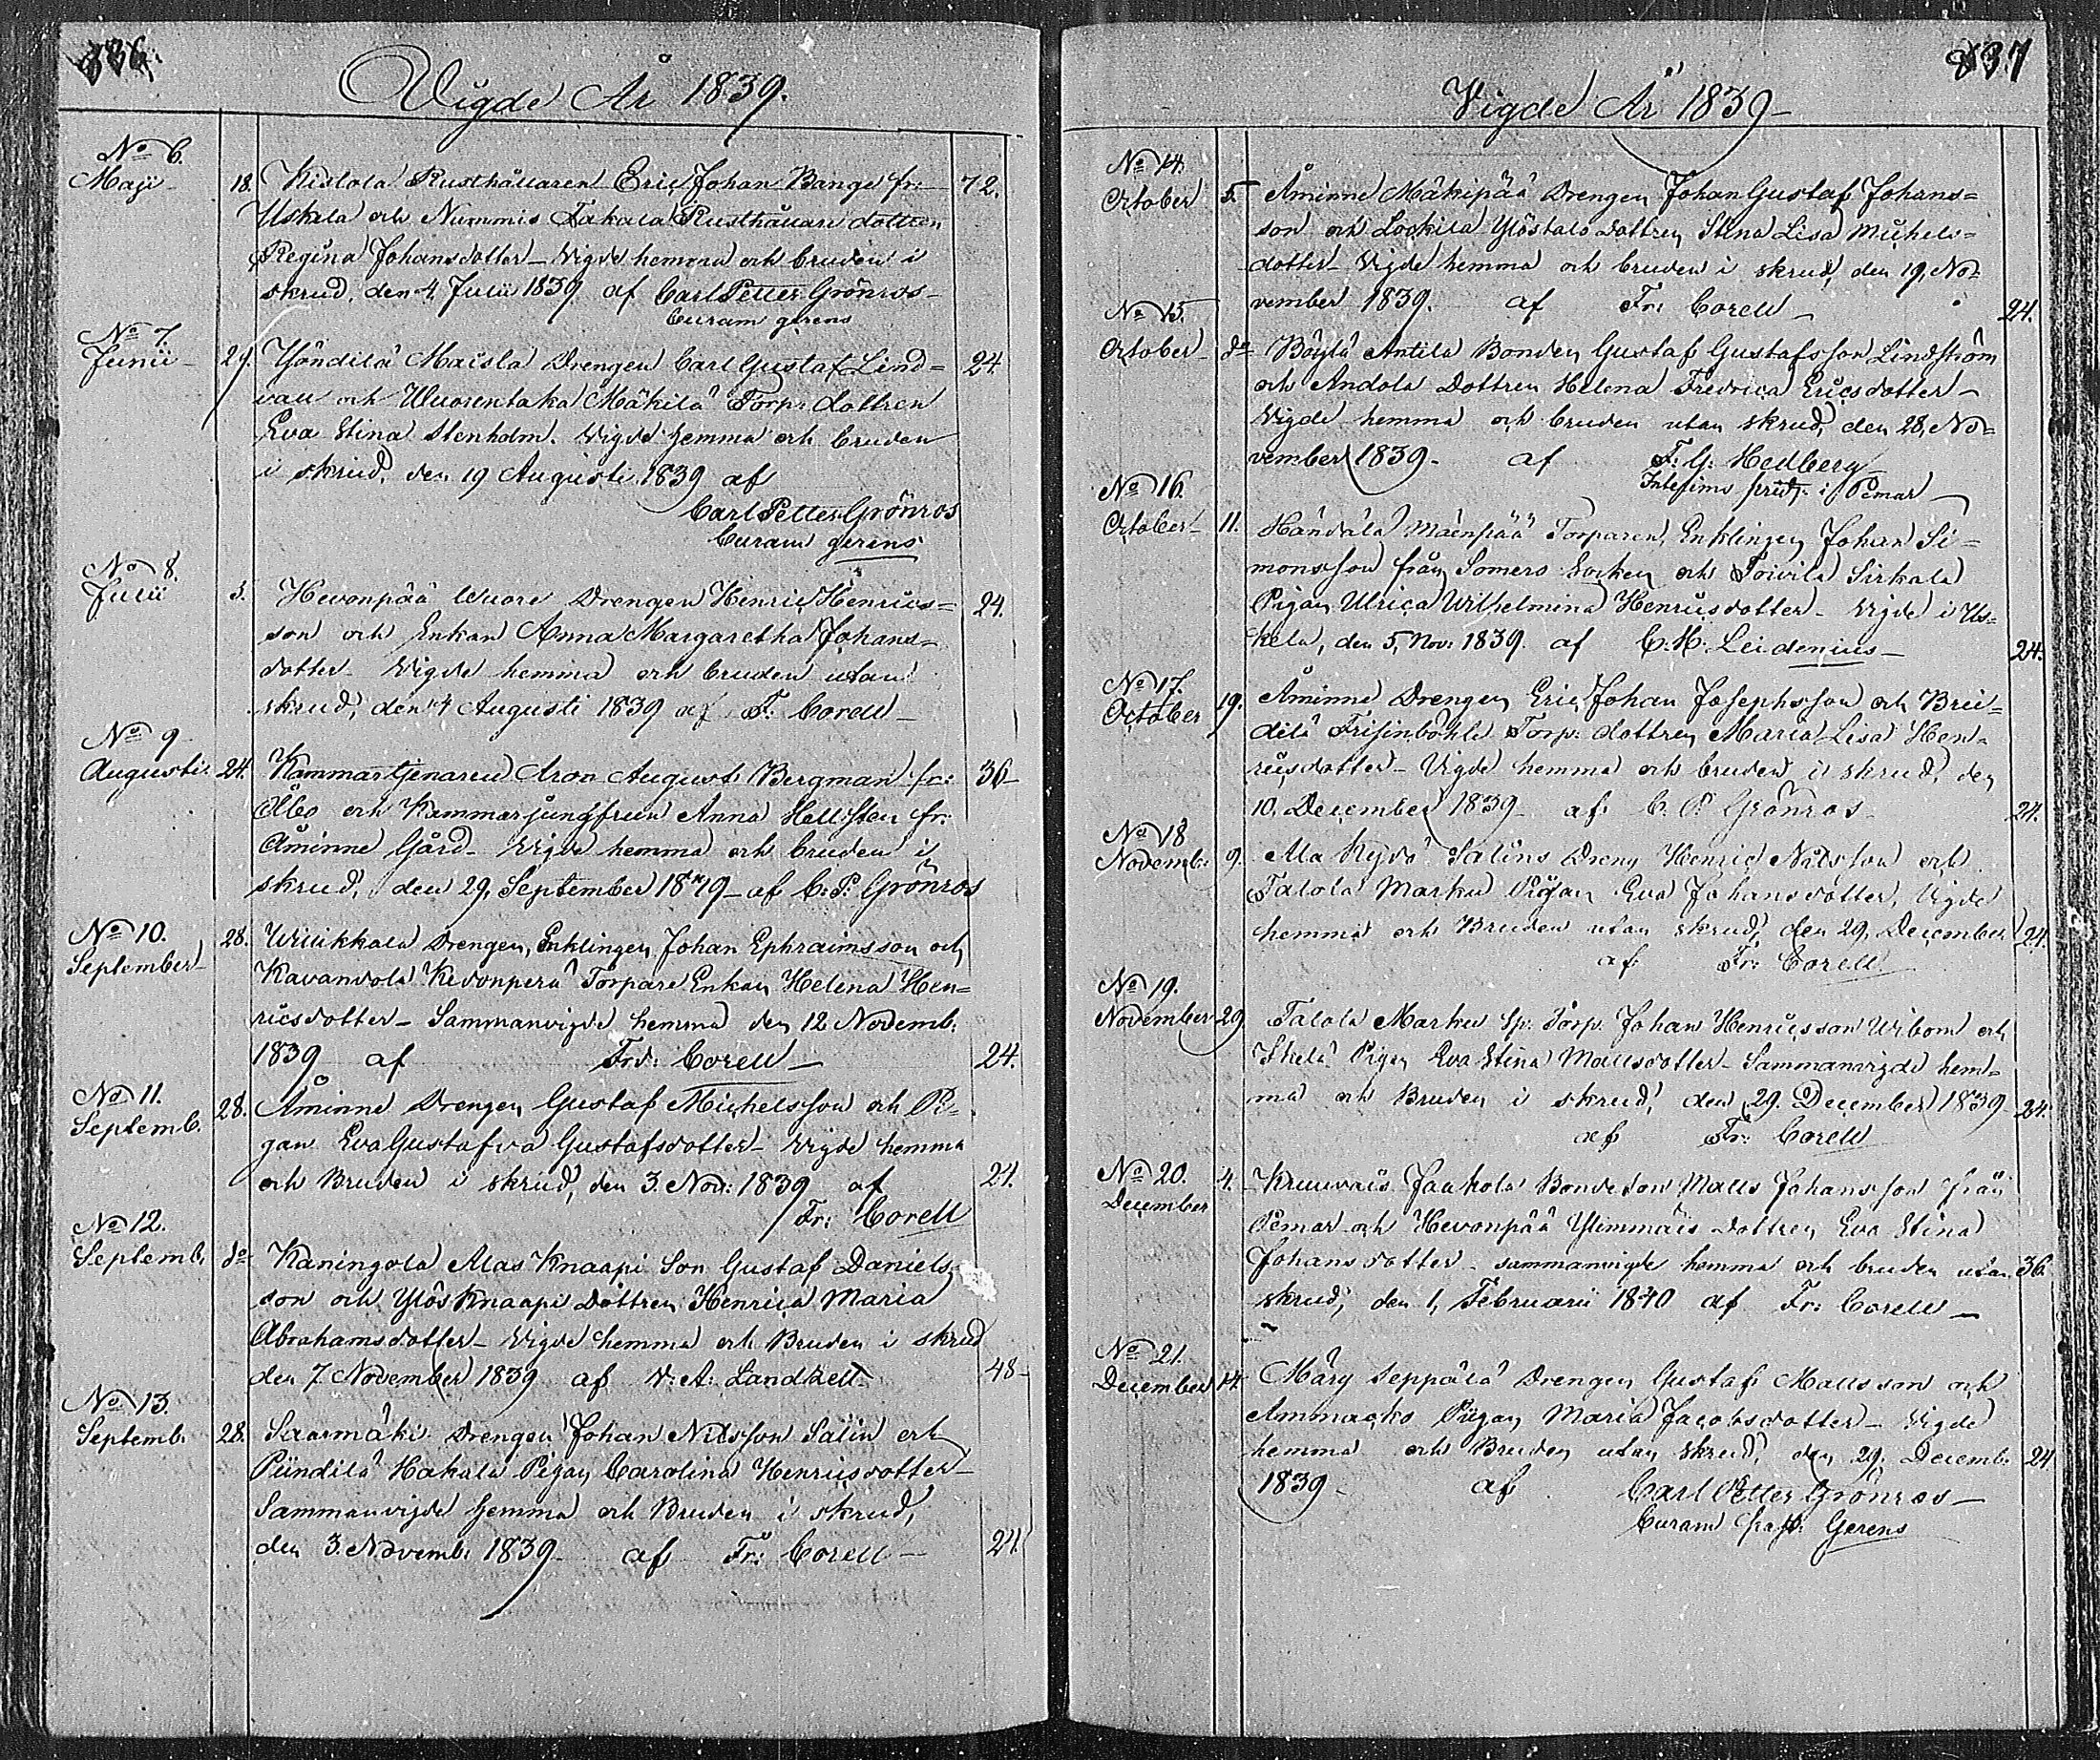 336.
Vigde År 1839.
No 6.
Maji 18. Kistola Rusthållaren Eric Johan Bange fr: 72.
Uskela och Nummis Takala Rusthållare dottren
Regina Johansdotter – Vigde hemma och bruden i
skrud, den 4 Julii 1839 af Carl Petter Grönros –
Curam gerens
No 7.
Junii – 29. Yöndilä Maisla Drengen Carl Gustaf Lind= 24.
vall och Wuorentaka Mäkilä Torp: dottren
Eva Stina Stenholm. Vigde hemma och bruden
i skrud, den 19 Augusti 1839 af
Carl Petter Grönros
Curam gerens
No 8.
Julii 5. Hevonpää Wuore Drengen Henric Henrics= 24.
son och Enkan Anna Margaretha Johans=
dotter – Vigde hemma och bruden utan
skrud, den 4 Augusti 1839 af F: Corell –
No 9
Augusti 24. Kammartjenaren Aron August Bergman fr: 36–
Åbo och Kammarjungfrun Anna Hellsten fr:
Åminne Gård – Vigde hemma och bruden i
skrud, den 29, September af C: P: Grönros
No 10.
September – 28. Wiukkala Drengen, Enklingen Johan Ephraimsson och
Kavandola Kedonperä Torpare Enkan Helena Hen=
ricsdotter – Sammanvigde hemma den 12 Novemb.
1839 af Frd: Corell – 24.
No 11.
Septemb. 28. Åminne Drengen Gustaf Michelsson och Pi=
gan Eva Gustafva Gustafsdotter – Vigde hemma
och Bruden i skrud, den 3. Nov: 1839 af 24.
Fr: Corell
No 12.
Septemb. do Kaningola Alas Knaapi Son Gustaf Daniels=
son och Ylös Knaapi Dottren Henrica Maria
Abrahamsdotter – Vigde hemma och Bruden i skrud
den 7 November 1839 af V: A: Landzell. 48–
No 13.
Septemb. 28. Saarmäki Drengen Johan Nilsson Salin och
Pündilä Hakala Pigan Carolina Henricsdotter –
Sammanvigde hemma och Bruden i skrud,
den 3 Novemb: 1839 af Fr: Corell – 24.
337
Vigde År 1839 –
No 14.
October 5. Åminne Mäkipää Drengen Johan Gustaf Johans=
son och Lockila Ylöstalo dottren Stina Lisa Michels=
dotter – Vigde hemma och bruden i skrud, den 19, No=
vember 1839. af Fr: Corell – 24.
No 15.
October – do Böylä Antila Bonden Gustaf Gustafsson Lindström
och Andola Dottren Helena Fredrica Ericsdotter –
Vigde hemma och bruden utan skrud, den 28, No=
vember 1839 – af F: G: Hedberg
Interims pred: i Pemar –
No 16.
October – 11. Händälä Mäenpää Torparen, Enklingen Johan Si=
monsson från Somero Socken och Toivila Sirkala
Pigan Ulrica Wilhelmina Henricsdotter – Vigde i Us=
kela, den 5, Nov: 1839. af C. H. Leidenius – 24.
No 17.
October 19. Åminne Drengen Eric Johan Josephsson och Brei=
dilä Frisinböhle Torp: dottren Maria Lisa Hen=
ricsdotter – Vigde hemma och bruden i skrud, den
10, December 1839 – af: C. P. Grönros – 24.
No 18
Novemb: 9. Ala Salins Dreng Henric Nilsson och
Talola Marku Pigan Eva Johansdotter, Vigde
hemma och Bruden utan skrud, den 29, December 24.
af Fr: Corell
No 19.
November 29 Talola Marku Sp: Torp. Johan Henricsson Wibom och
Pigan Eva Stina Mattsdotter – Sammanvigde hem=
ma och Bruden i skrud, den 29. December 1839 24.
af Fr: Corell
No 20.
December 4. Kruuvais Jaakola Bonde son Matts Johansson från
Pemar och Hevonpää Ylimmäis Dottren Eva Stina
Johansdotter – sammanvigde hemma och bruden utan 36.
skrud, den 1, Februarii 1840 af Fr: Corell –
No 21.
December 14. Märy Seppälä Drengen Gustaf Mattsson och
Ammacko Pigan Maria Jacobsdotter – Vigde
hemma och Bruden utan skrud, den 29. Decemb. 24
1839 – af Carl Petter Grönros –
Curam Gerens